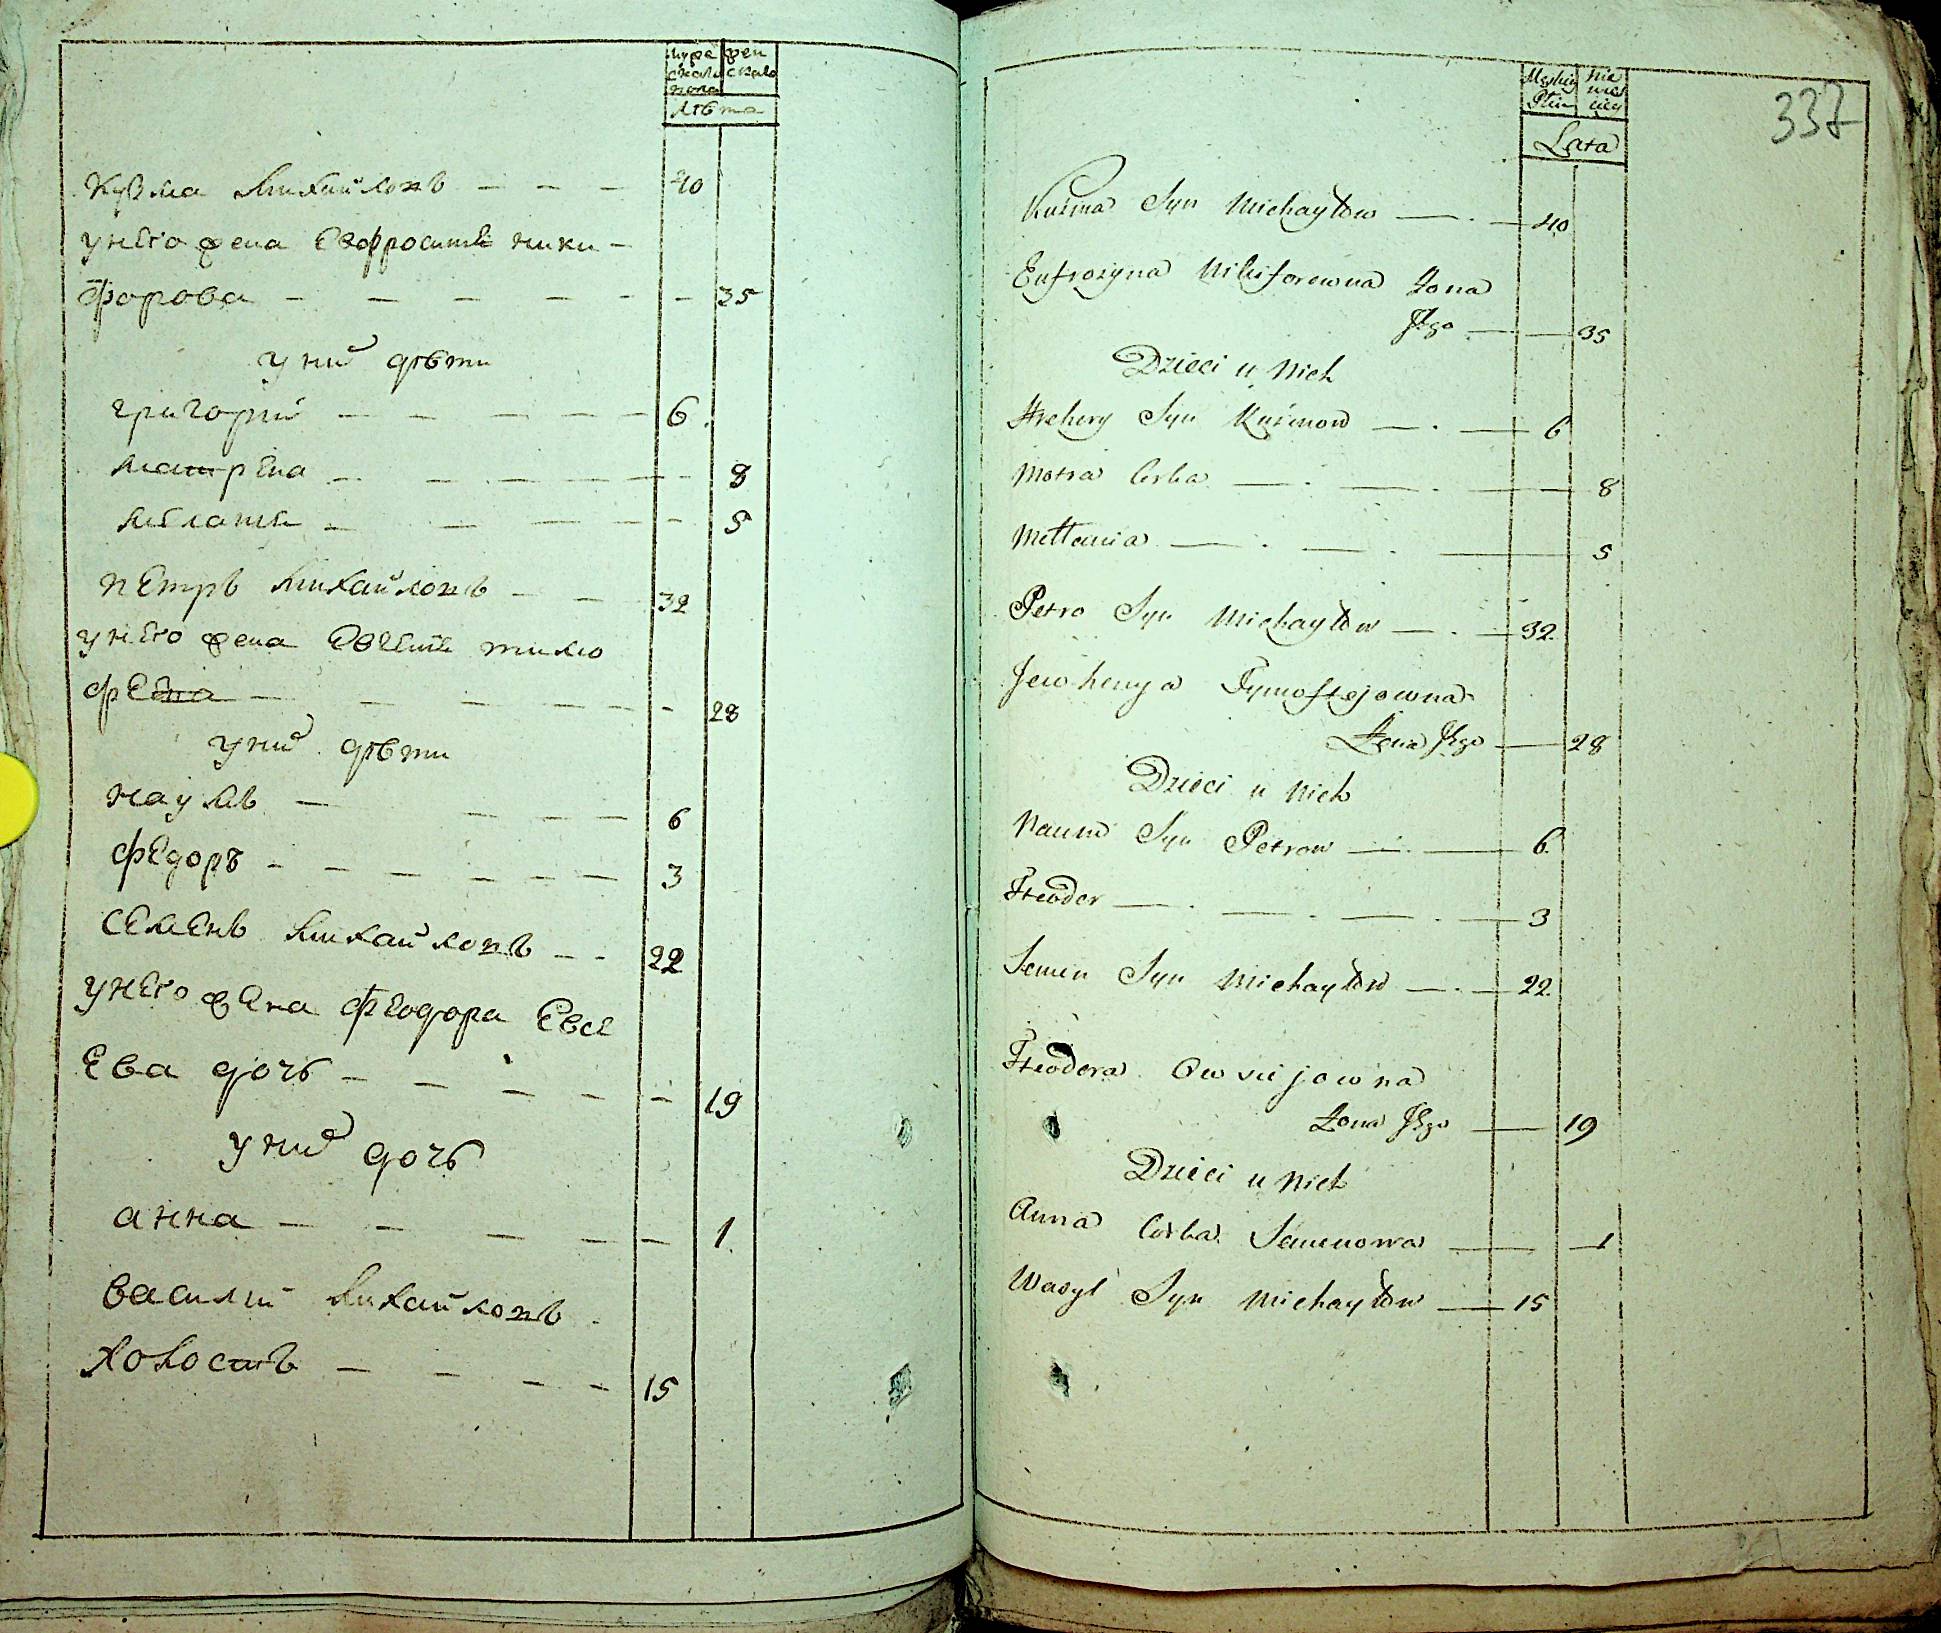 мужеска пола
женска
лѣта
кузма михайловъ 40
унего жена Евфросинѣ ники-
форова 35
у них дѣти
григории 6
матрена 8
мелання 5
петръ михайловъ 32
унего жена Евгенїѣ тимо
фева 28
у них дѣти
наумъ 6
федоръ 3
семенъ михайловъ 22
унего жена феодора Евсе
ева дочь 19
у них дочь
анна 1
василий михайловъ
холостъ 15
337
Męskiey Płci
Niewieściey
Lata
Kuźma Syn Michayłow 40
Eufrozyna Nikiforowna Żona
Jego 35
Dzieci u Nich
Hrehory Syn Kuźmow 6
Motra Corka 8
Mełłania 5
Petro Syn Michayłow 32
Jewhenya Tymoftejowna
Żona Jego 28
Dzieci u Nich
Naum Syn Petrow 6
Fteodor 3
Semen Syn Michayłow 22
Fteodora Owsiejowna
Żona Jego 19
Dzieci u Nich
Anna Corka Semenowa 1
Wasyl Syn Michayłow 15